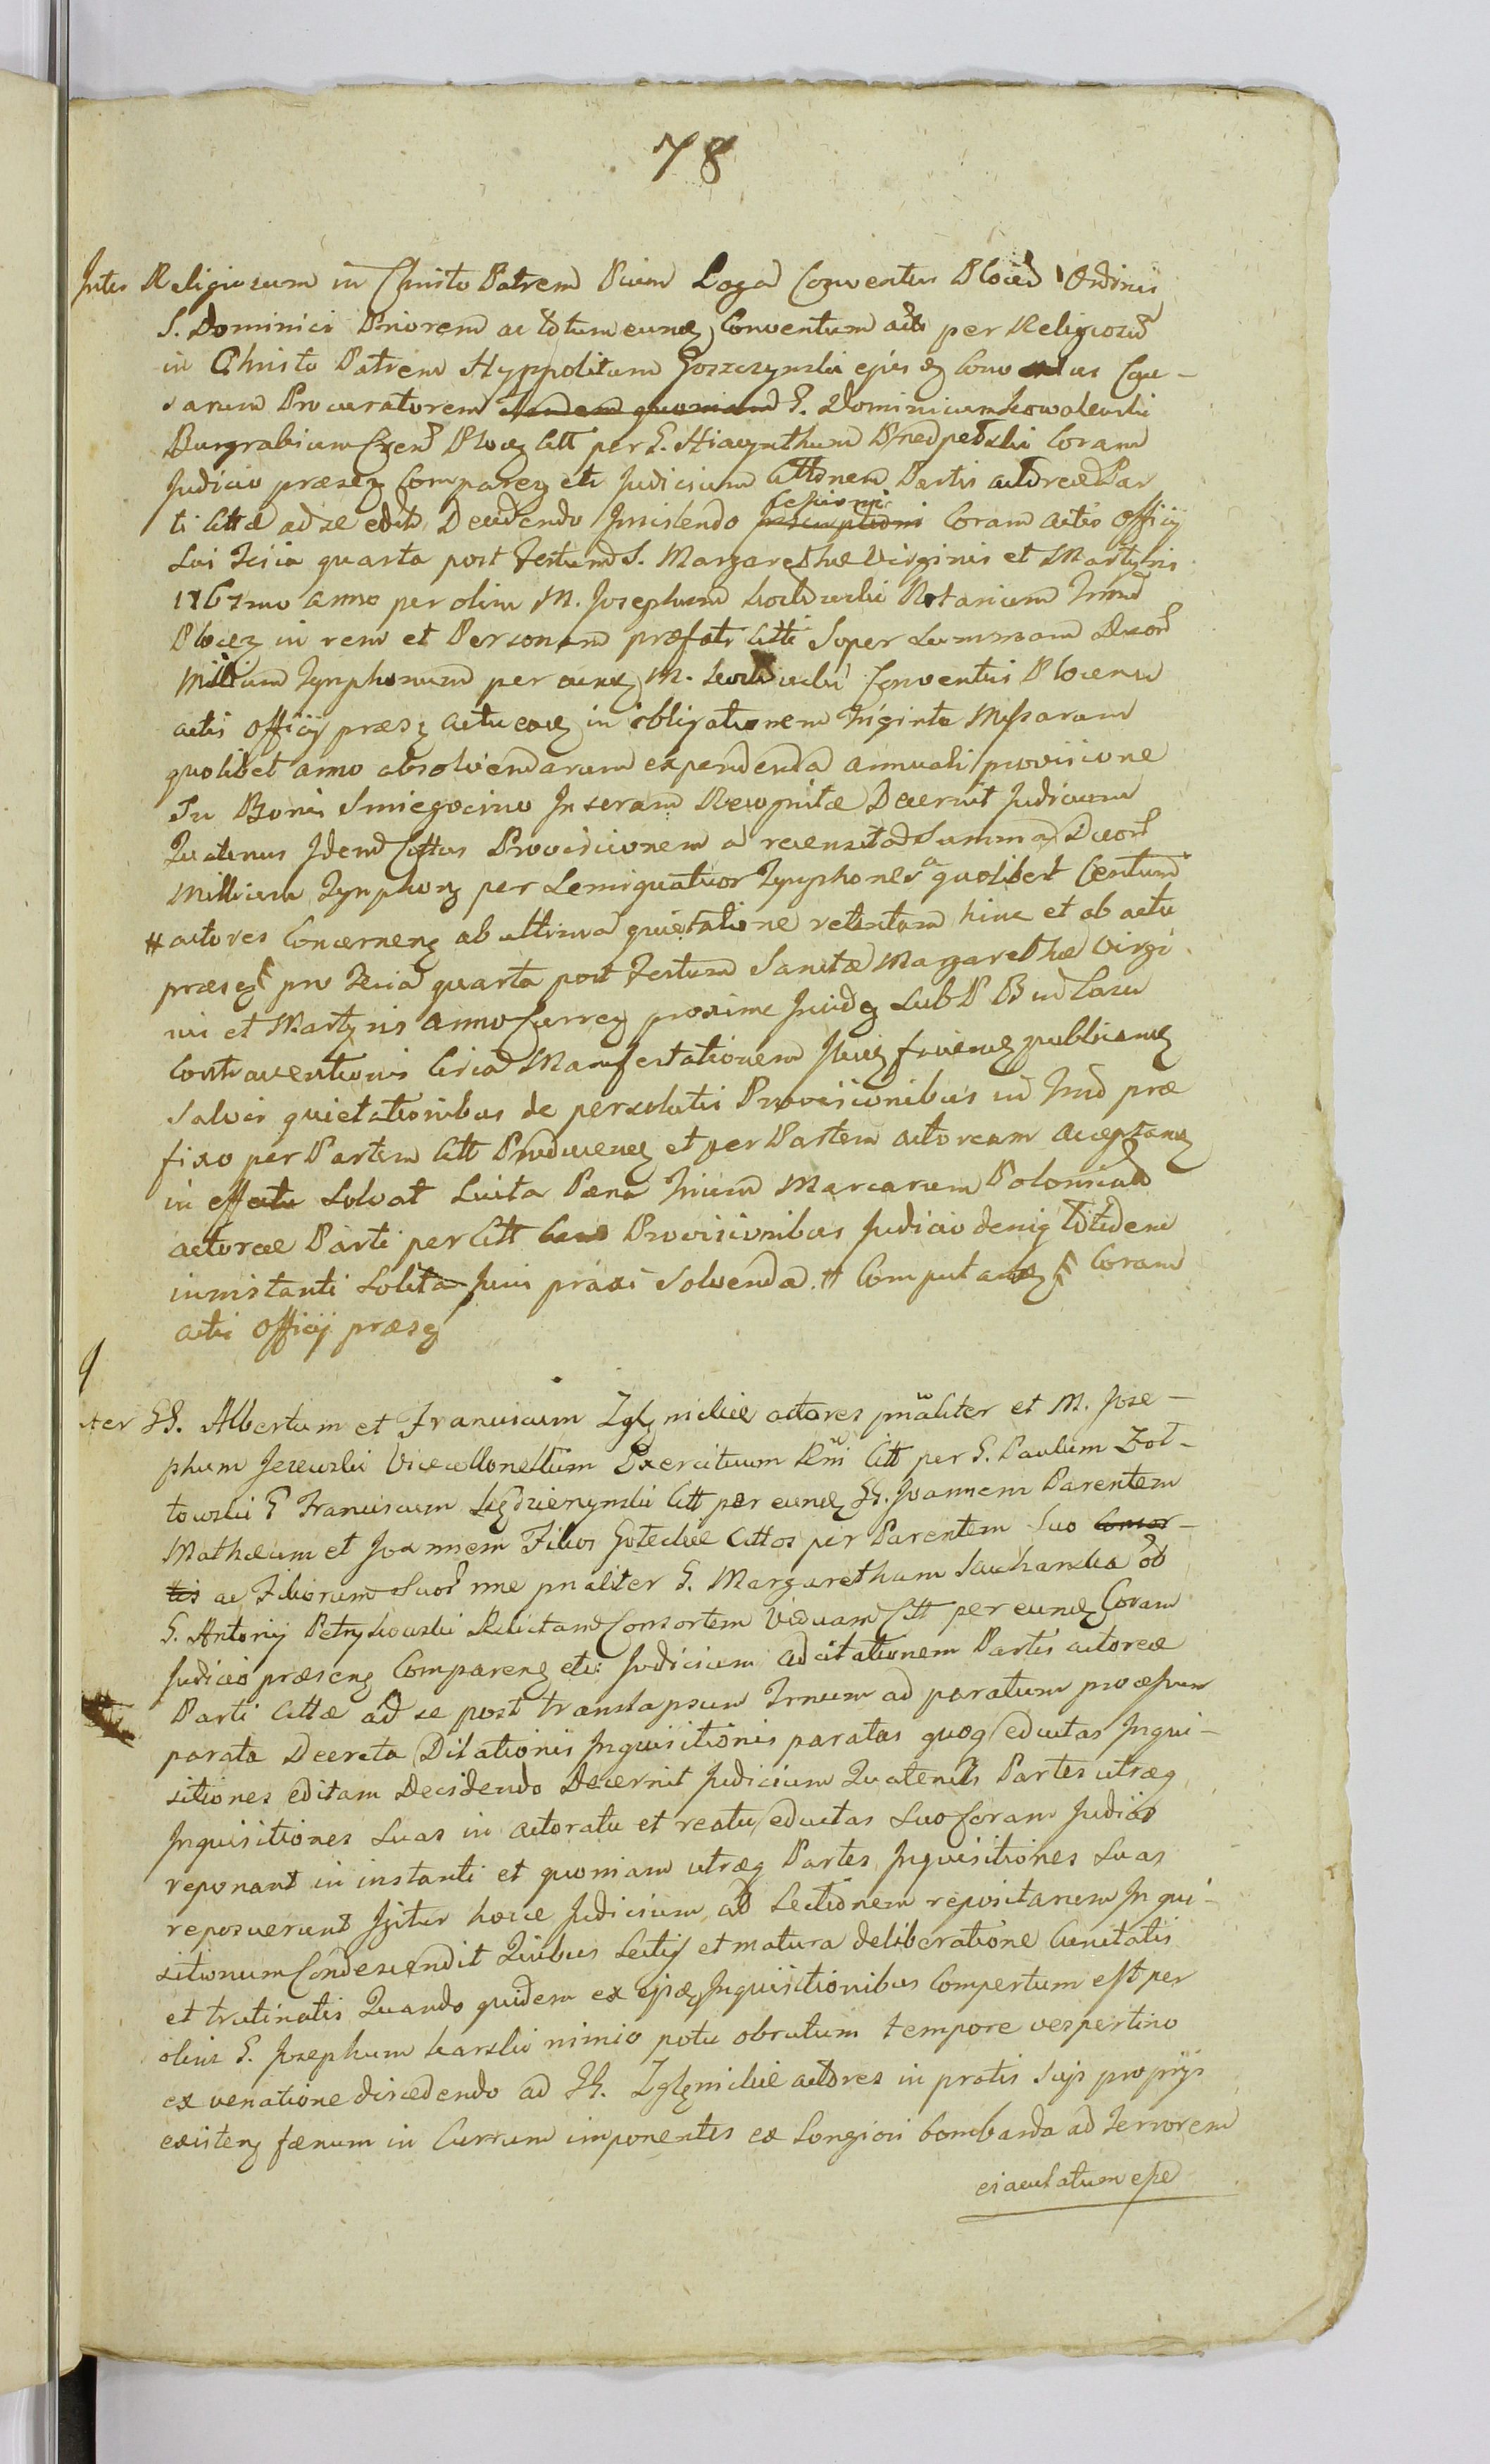 78
Inter Religiosum in Christo Patrem Pium Loga Conventus Ploceñ Ordinis
S. Dominici Priorem ac totum eund Conventum act per Religiosũ
in Christo Patrem Hyppolitum Goszczynski ejus Conventus Cau-
sarum Procuratorem Tandem quoniam G. Dominicum Kowalewski
Burgrabium Ploc Citt per G. Hiacynthum Coram
Judicio præsen Comparen etc Judicium Cittõnem Partis actoreæ Par
ti Cittæ ad se edit Decidendo Insistendo Inscriptioni Cessioni Coram actis Officij
sui Feria quarta post Festum S. Margarethæ Virginis et Martyris
1767mo Anno per olim M. Josephum Notarium
Plocen in rem et Personam præfati Citti Super Summam Duor
Millium Tynphonum per eund M. Conventui Plocensi
actis Officij præs actu in obligationem Triginta Missarum
quolibet anno absolvendarum expendenda annuali provisione
In Bonis Smiegocino Inseram Recognitæ Decernit Judicium
Quatenus Idem Cittus Provisionem a recensita Summa Duor
Millium Tynphon per Semiquatuor Tynphones a quolibet Centum
# actores Concernen ab ultima quietatione retentam hinc et ab actu
præsen pro Feria quarta post Festum Sanctæ Magarethæ Virgi
nis et Martyris Anno Curren proxime Incid sub P B in Casu
Contraventionis Circa Manifestationem publicand
Salvis quietationibus de persolutis Provisionibus in præ
fixo per Partem Citt Producend et per Partem actoream acceptand
in effectu Solvat Luita Pæna Trium Marcarum Polonical
actoreæ Parti per Citt Provisionibus Judicio deniq totidem
in instanti Solita Juris praxi Solvenda # Computand Coram
actis Officij præsen
ter GG. Albertum et Franciscum Zglynickie actores pñaliter et M. Jose-
phum Jezewski Vicecollonellum Exercituum Citt per G. Paulum Zol-
towski G Franciscum Citt per eund GG. Joannem Parentem
Mathæum et Joannem Filios Goteckie Cittos per Parentem Suo Consor-
tis ac Filiorum Suor nne pnaliter G. Margaretham Suchanska ol
G. Antonij Petrykowski Relictam Consortem Viduam Citt per eund Coram
Judicio præsen Comparen etc: Judicium adcitationem Partis actoreæ
Parti Cittæ ad se post translapsum Trnum ad paratum processum
parata Decreta Dilationis Inquisitionis paratas quoq eductas Inqui-
sitiones editam Decidendo Decernit Judicium Quatenus Partes utræq
Inquisitiones Suas in actoratu et reatu eductas Suo Coram Judicio
reponant in instanti et quoniam utræq Partes Inquisitiones Suas
reposuerunt Igitur hocce Judicium ad Lectionem repositarum Inqui-
sitionum Condescendit Quibus Lectis et matura deliberatione Cunctatis
et trutinatis Quando quidem ex ejsd Inquisitionibus Compertum est per
olim G. Josephum Karski nimio potu obrutum tempore vespertino
ex venatione discedendo ad GG. Zglynickie actores in pratis Suis proprijs
existen fænum in Currum imponentes ex Longiori bombarda ad terrorem
eiaculatum esse